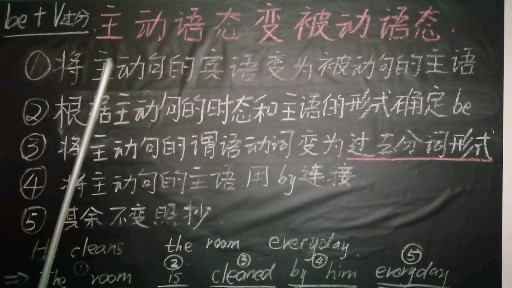 be + V过分 主动语态变被动语态.
①将主动句的宾语变为被动句的主语
②根据主动句的时态和主语的形式确定be
③将主动句的谓语动词变为过去分词形式
④将主动句的主语用by连接
⑤其余不变照抄.
He cleans the room everyday.
① ② ③ ④ ⑤
⇒ The room is cleaned by him everyday